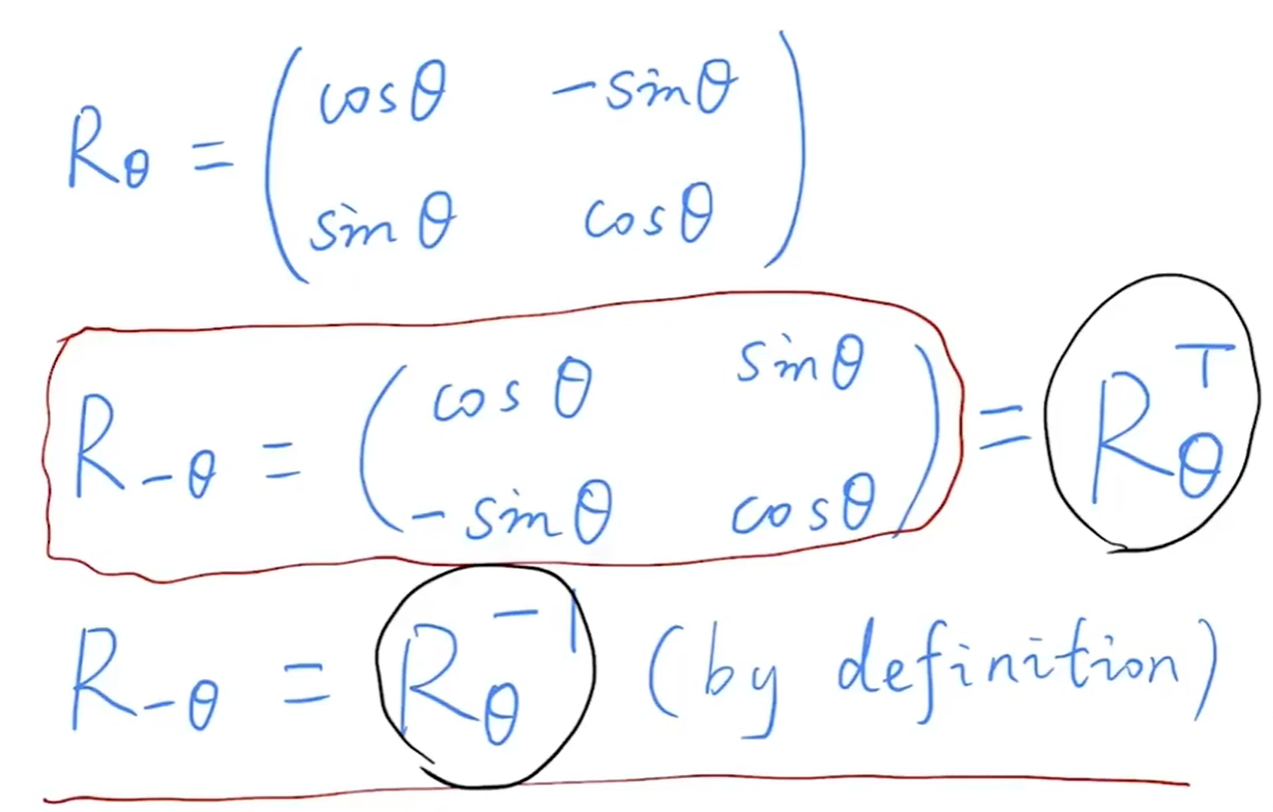 R_θ = ( cosθ  -sinθ ; sinθ  cosθ )
R_{-θ} = ( cosθ  sinθ ; -sinθ  cosθ ) = R_θ^T
R_{-θ} = R_θ^{-1} (by definition)